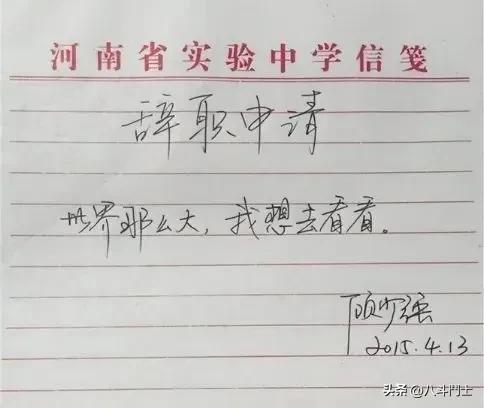 河南省实验中学信笺
辞职申请
世界那么大，我想去看看。
顾少强
2015.4.13
头条 @八斗鬥士